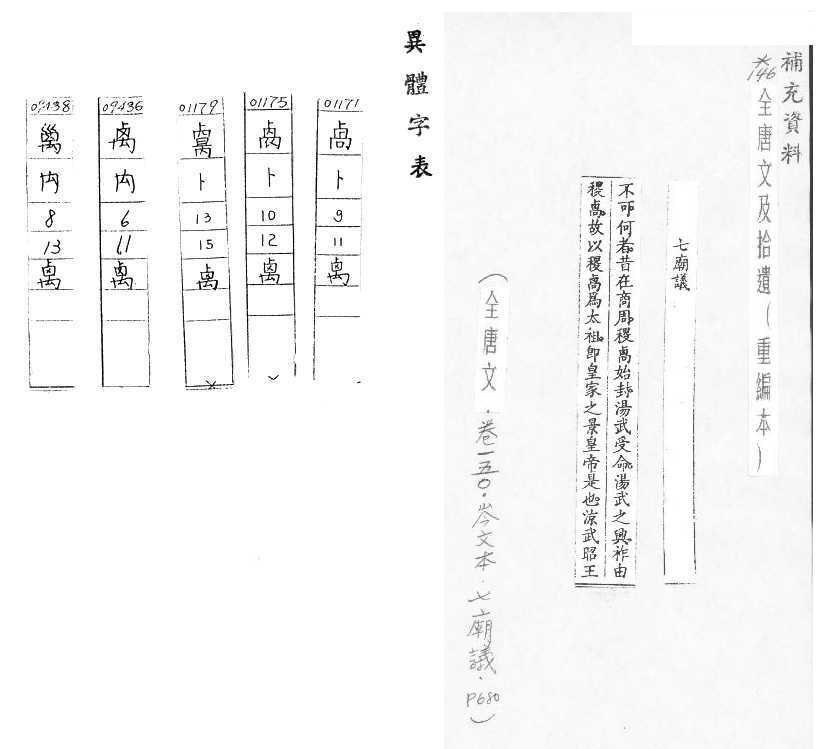 補充資料
*146 全唐文及拾遺（重編本）
七廟議
不可何者昔在商周稷卨始封湯武受命湯武之興祚由
稷卨故以稷卨爲太祖即皇家之景皇帝是也涼武昭王
（全唐文．卷一五○．岑文本．七廟議．P680）
異體字表
01171 卨 卜 9 11 禼
01175 卜 10 12 禼
01179 卜 13 15 禼
09436 禸 6 11 禼
09438 禸 8 13 禼